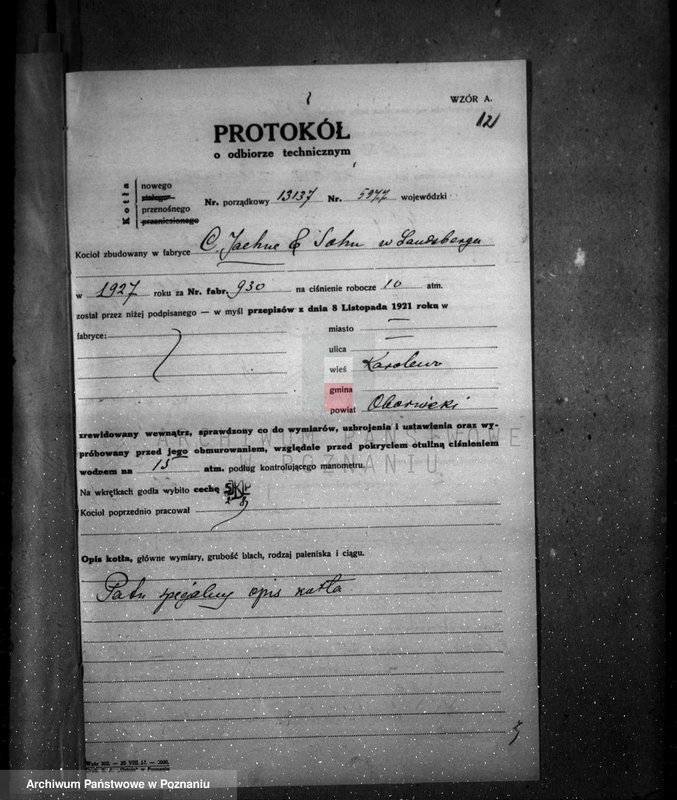 WZÓR A.
121
PROTOKÓŁ
o odbiorze technicznym
Kotła
nowego
stałego
przenośnego
przeniesionego
Nr. porządkowy 13137 Nr. 5977 wojewódzki
Kocioł zbudowany w fabryce C. Jaehne & Sohn w Landsbergu
w 1927 roku za Nr. fabr. 930 na ciśnienie robocze 10 atm.
został przez niżej podpisanego — w myśl przepisów z dnia 8 Listopada 1921 roku w
fabryce:
miasto
ulica
wieś Karolewo
gmina
powiat Obornicki
zrewidowany wewnątrz, sprawdzony co do wymiarów, uzbrojenia i ustawienia oraz wy-
próbowany przed jego obmurowaniem, względnie przed pokryciem otuliną ciśnieniem
wodnem na 15 atm. podług kontrolującego manometru.
Na wkrętkach godła wybito cechę
Kocioł poprzednio pracował
Opis kotła, główne wymiary, grubość blach, rodzaj paleniska i ciągu.
Patrz specjalny opis kotła.
ARCHIWUM PAŃSTWOWE
W POZNANIU
Archiwum Państwowe w Poznaniu